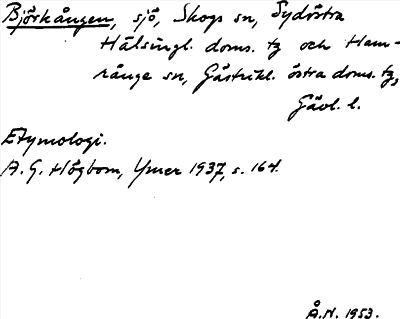 Björkången, sjö, Skogs sn, Sydöstra
Hälsingl. doms. tg och Ham-
rånge sn, Gästrikl. östra doms. tg,
Gävl. l.
Etymologi.
A. G. Högbom, Ymer 1937, s. 164.
Å.N. 1953.